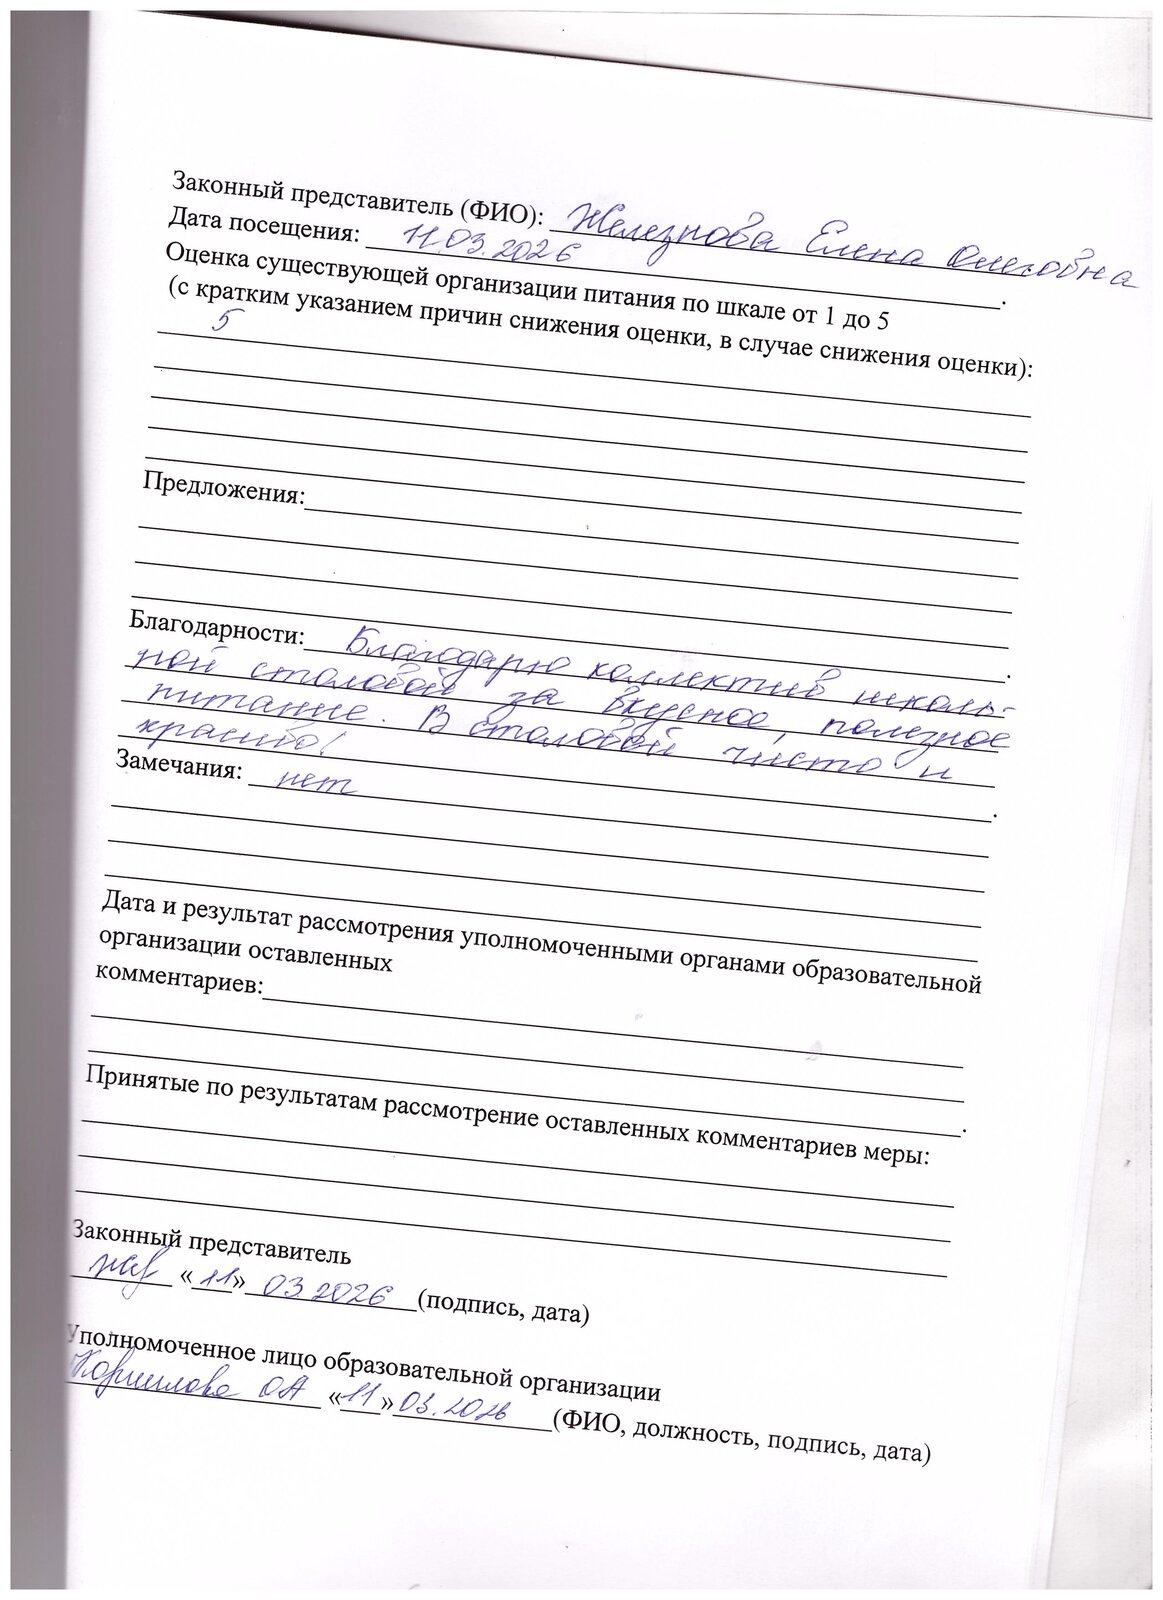 Законный представитель (ФИО): Железнова Елена Олеговна
Дата посещения: 11.03.2026.
Оценка существующей организации питания по шкале от 1 до 5
(с кратким указанием причин снижения оценки, в случае снижения оценки):
5
Предложения:
Благодарности: Благодарю коллектив школь-
ной столовой за вкусное, полезное
питание. В столовой чисто и
красиво!
Замечания: нет
Дата и результат рассмотрения уполномоченными органами образовательной
организации оставленных
комментариев:
Принятые по результатам рассмотрение оставленных комментариев меры:
Законный представитель
«11» 03.2026 (подпись, дата)
Уполномоченное лицо образовательной организации
ОА «11» 03.2026 (ФИО, должность, подпись, дата)